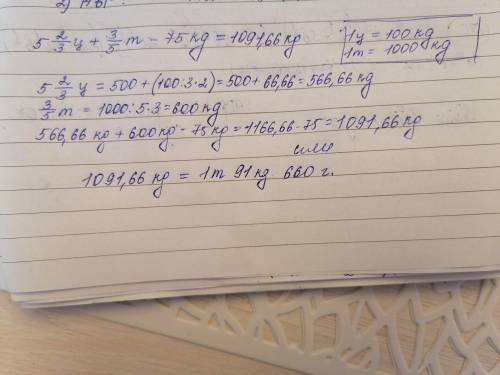 5 2/3 ц + 3/5 т - 75 кг = 1091,66 кг
1ц = 100 кг
1т = 1000 кг
5 2/3 ц = 500 + (100:3·2) = 500 + 66,66 = 566,66 кг
3/5 т = 1000:5·3 = 600 кг
566,66 кг + 600 кг - 75 кг = 1166,66 - 75 = 1091,66 кг
или
1091,66 кг = 1т 91кг 660 г.